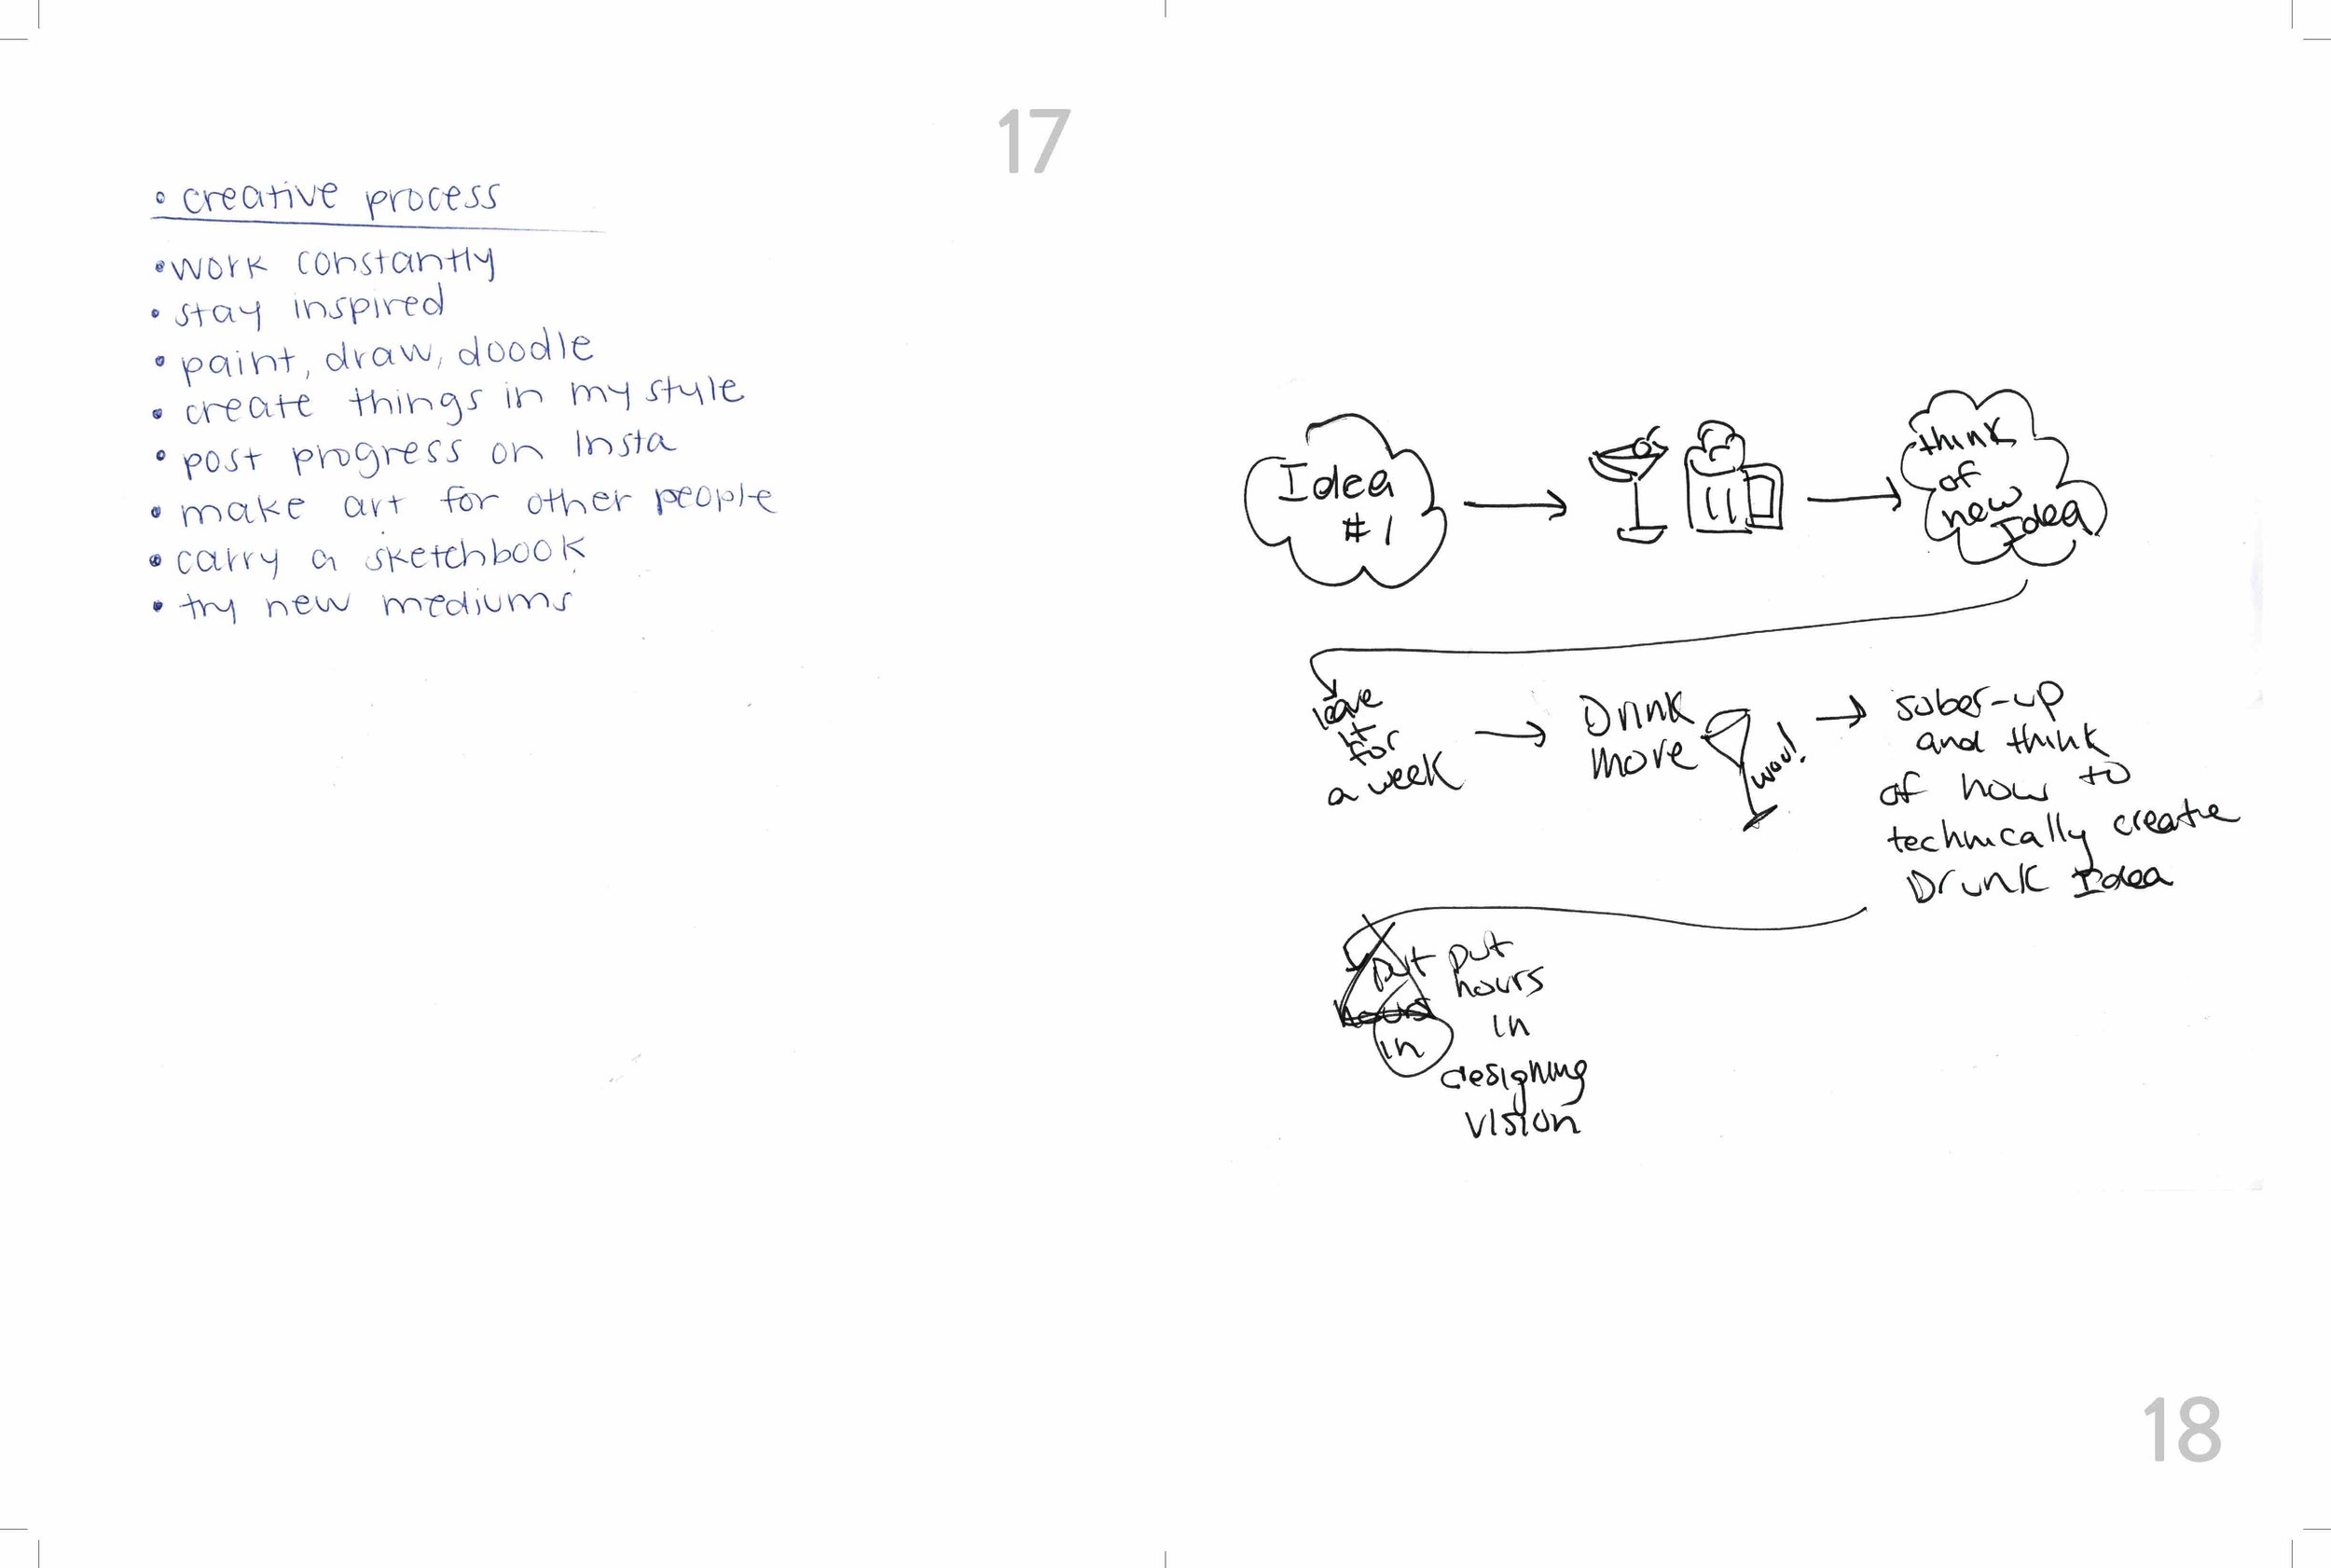 17
• creative process
• work constantly
• stay inspired
• paint, draw, doodle
• create things in my style
• post progress on Insta
• make art for other people
• carry a sketchbook
• try new mediums
Idea
#1
think
of
new
Idea
leave
it
for
a week
Drink
more
woo!
sober-up
and think
of how to
technically create
Drunk Idea
put
hours
in
put
hours
in
designing
vision
18